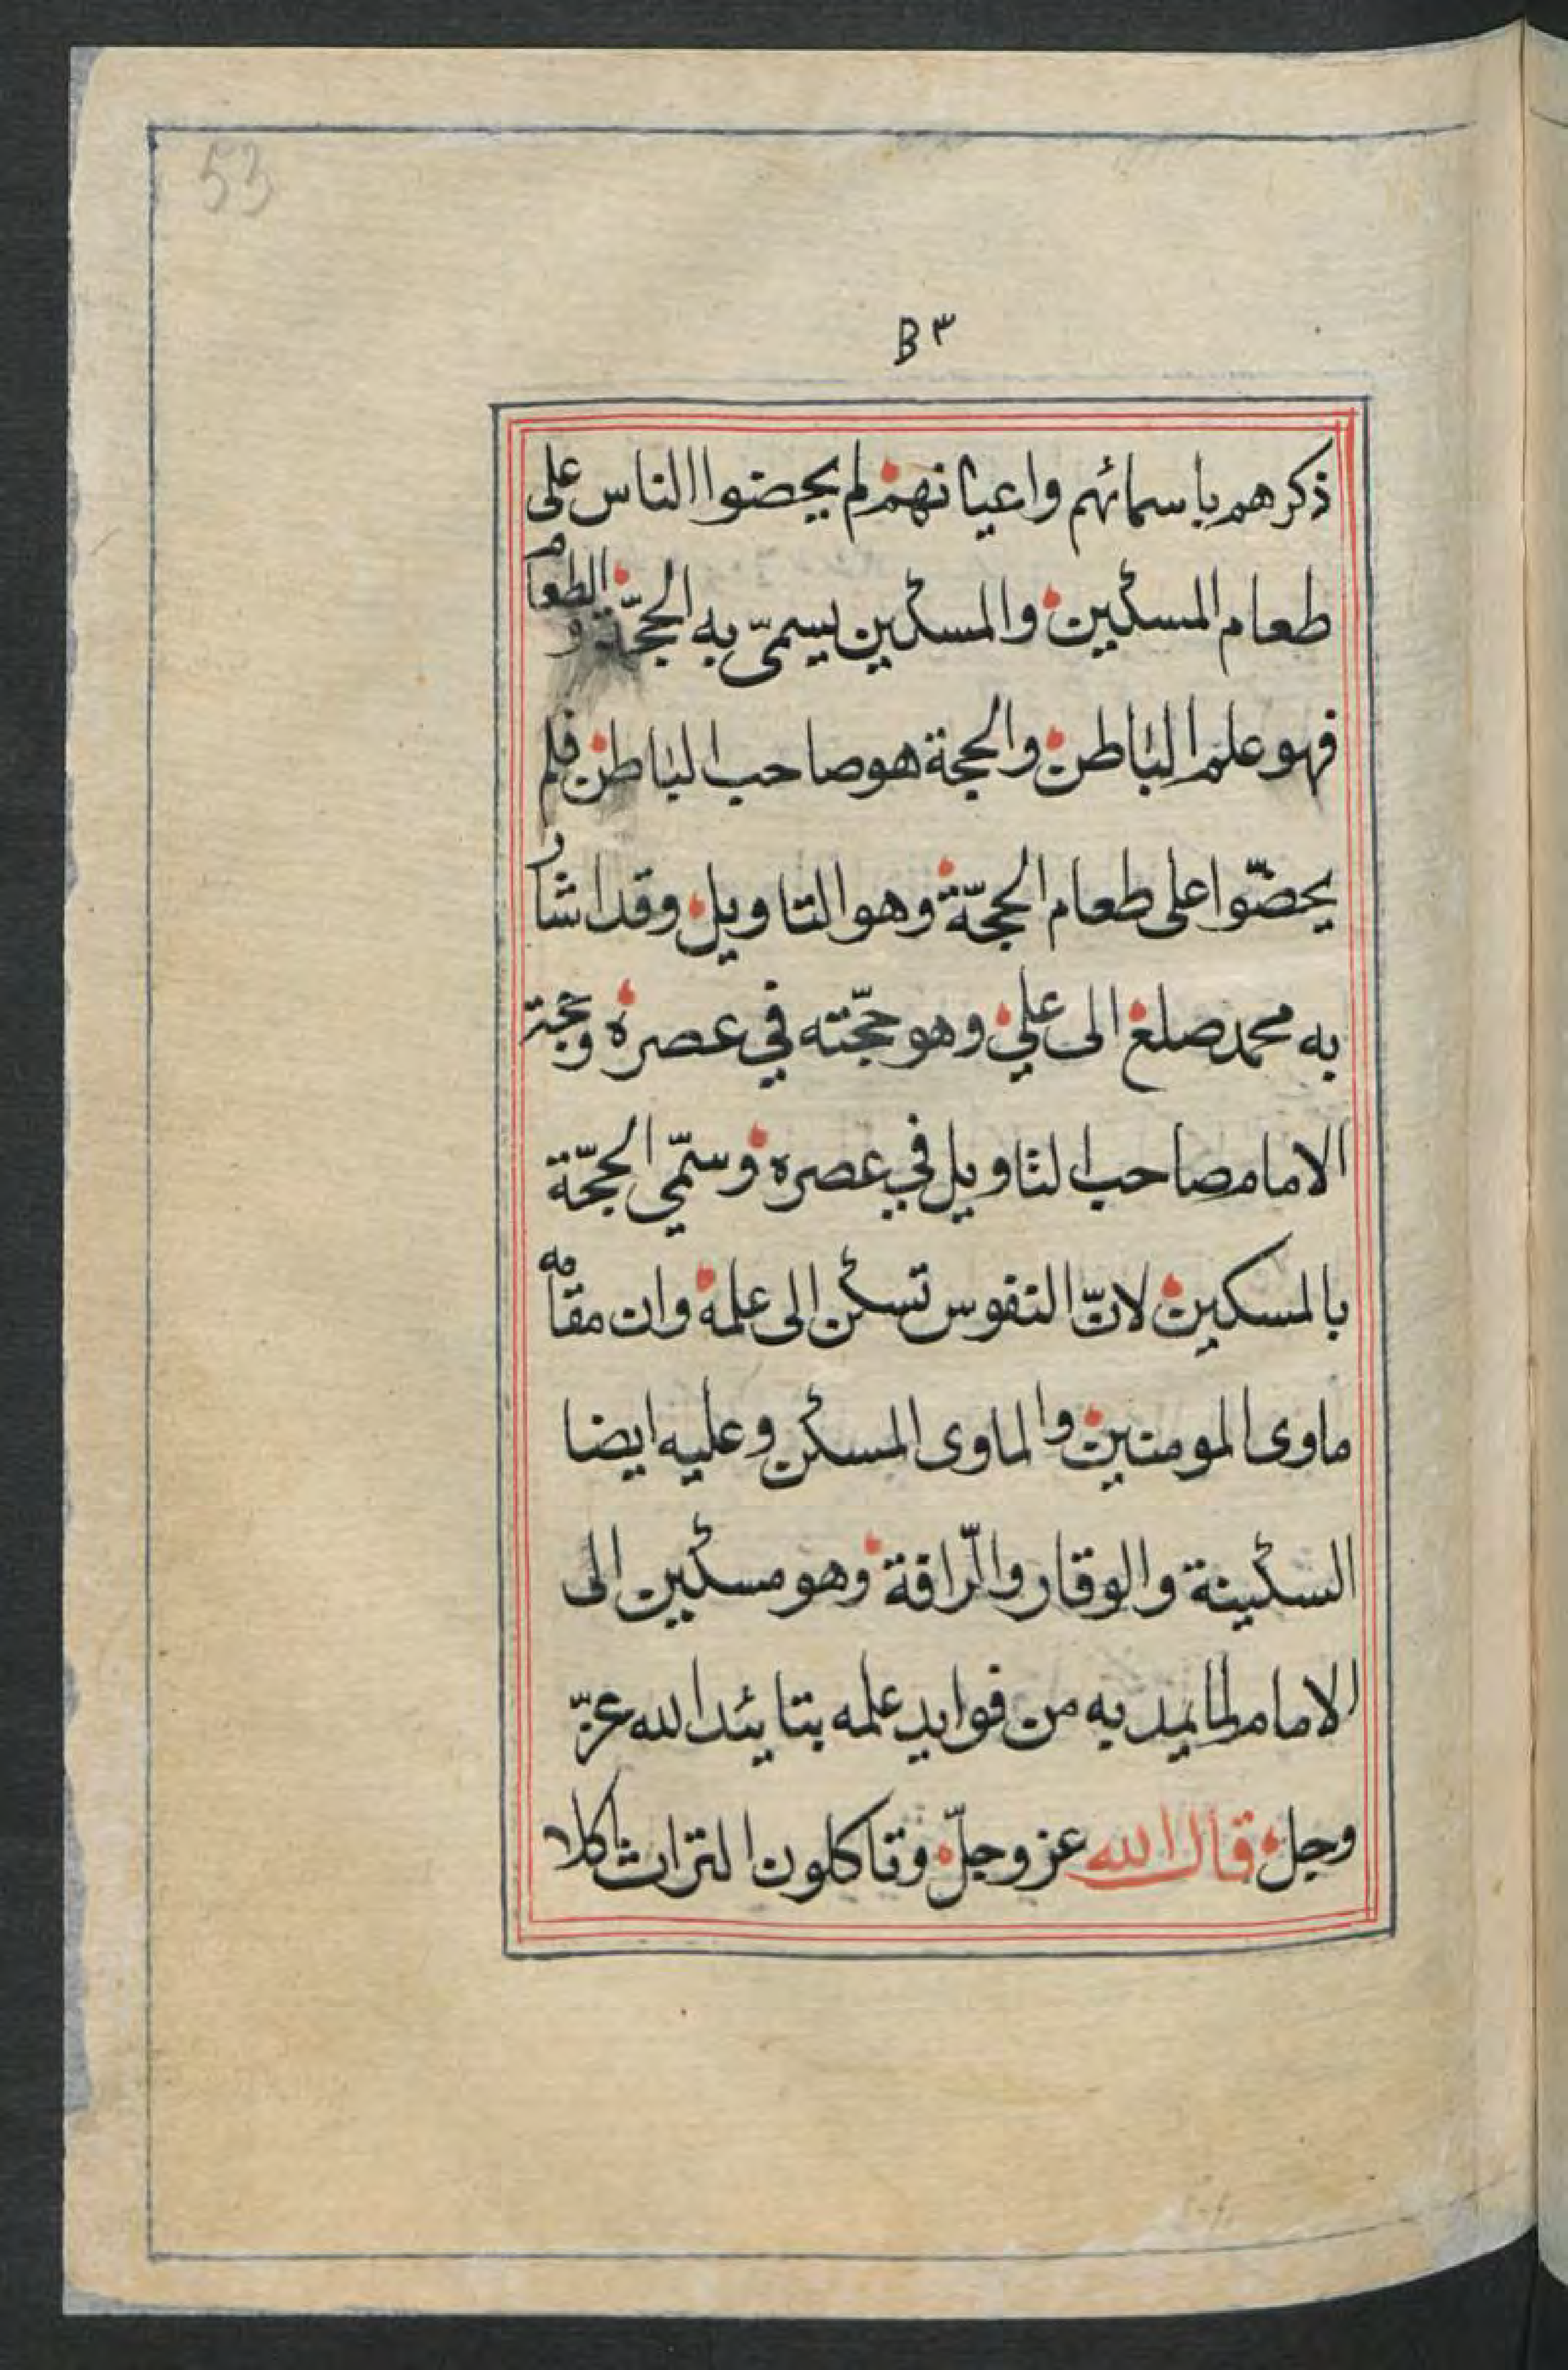 53
B٣
ذكرهم باسمائهم واعيانهم لم يحضوا الناس على
طعام المسكين والمسكين يسمّى به الحجّة والطعام
فهو علم الباطن والحجة هو صاحب الباطن فلم
يحضّوا على طعام الحجّة وهو التاويل وقد اشار
به محمد صلع الى علي وهو حجّته في عصره وحجة
الامام صاحب التاويل في عصره وسمّي الحجّة
بالمسكين لانّ النفوس تسكن الى علمه وان مقامه
ماوى المومنين والماوى المسكن وعليه ايضا
السكينة والوقار والرّافة وهو مسكين الى
الامام لما يمد به من فوايد علمه بتائيد الله عزّ
وجل قال الله عز وجلّ وتاكلون التراث اكلا